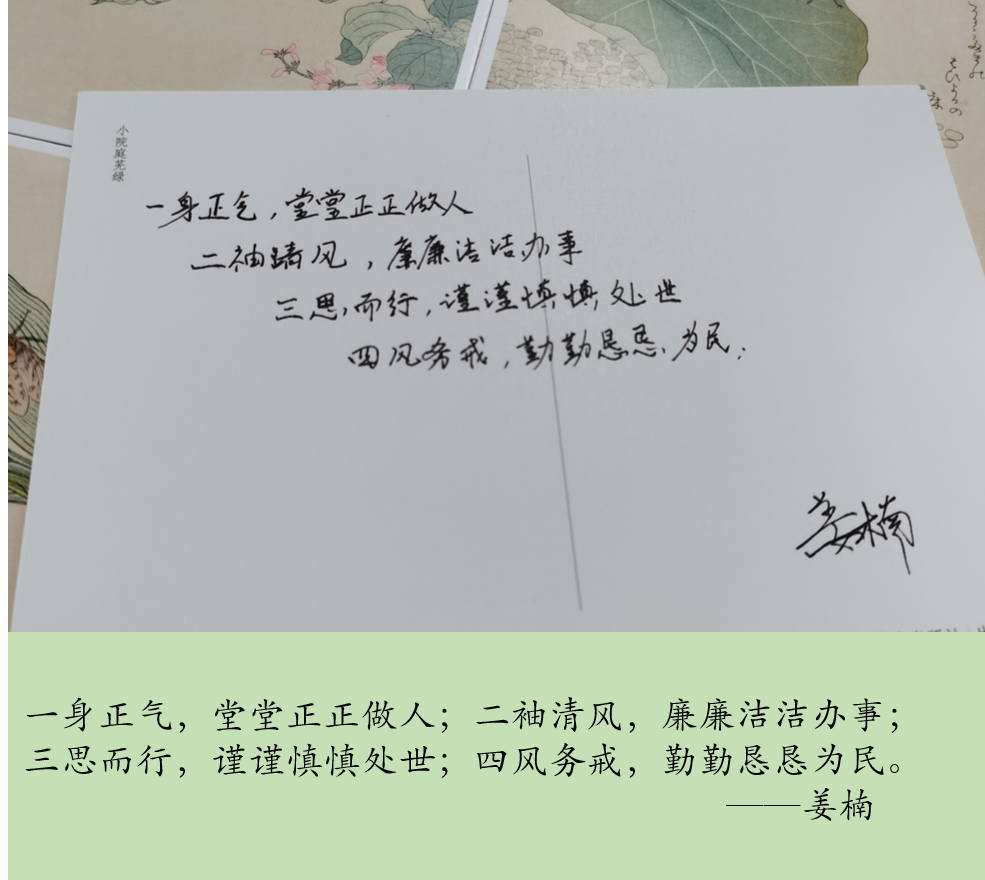 小院庭芜绿
一身正气，堂堂正正做人
二袖清风，廉廉洁洁办事
三思而行，谨谨慎慎处世
四风务戒，勤勤恳恳为民；
姜楠
一身正气，堂堂正正做人；二袖清风，廉廉洁洁办事；
三思而行，谨谨慎慎处世；四风务戒，勤勤恳恳为民。
——姜楠